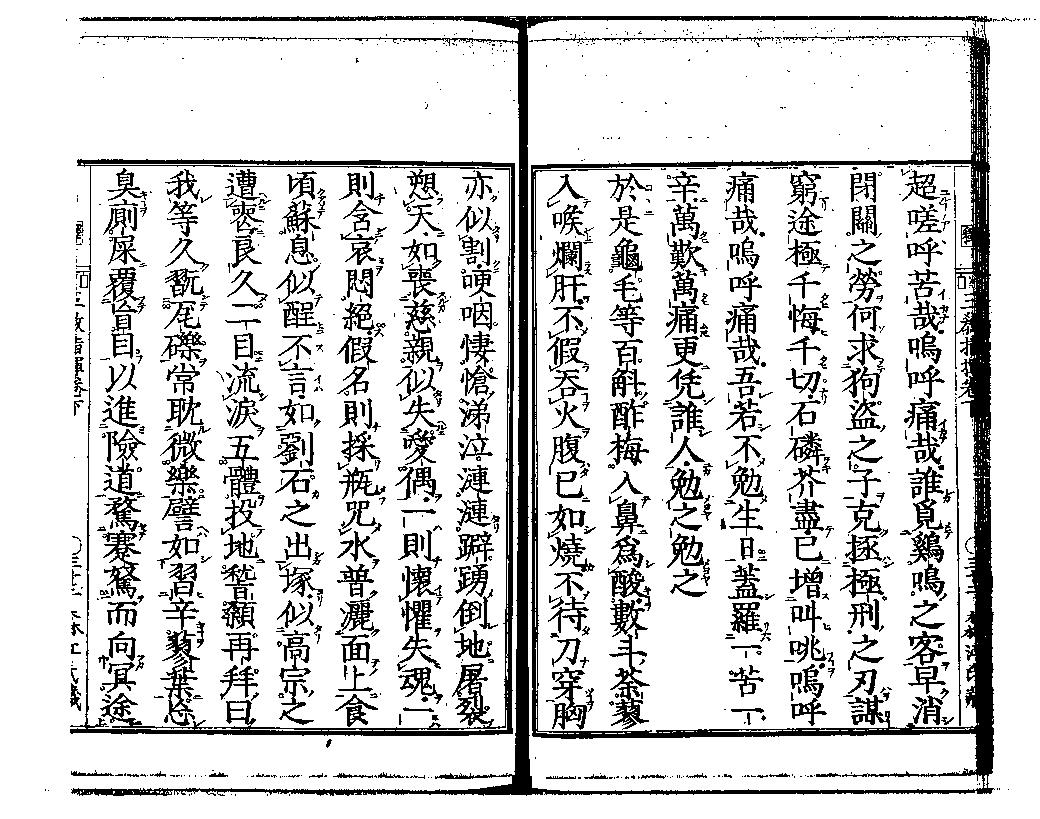 超嗟呼苦哉嗚呼痛哉誰覓鷄鳴之客早消
閉關之勞何求狗盜之子克拯極刑之刃謀
窮途極千悔千切石磷芥盡已增叫咷嗚呼
痛哉嗚呼痛哉吾若不勉生日蓋羅一苦一
辛萬歎萬痛更凭誰人勉之勉之
於是龜毛等百斛酢梅入鼻爲酸數斗茶蓼
入喉爛肝不假吞火腹已如燒不待刀穿胸
亦似割哽咽悽愴涕泣漣漣躃踴倒地屠裂
愬天如喪慈親似失愛偶一則懷懼失魂一
則含哀悶絕假名則採瓶咒水普灑面上食
頃蘇息似醒不言如劉石之出塚似高宗之
遭喪良久二目流淚五體投地稽顙再拜曰
我等久翫瓦礫常耽微樂譬如習辛蓼葉忘
臭廁屎覆盲目以進險道騖蹇駑而向冥途